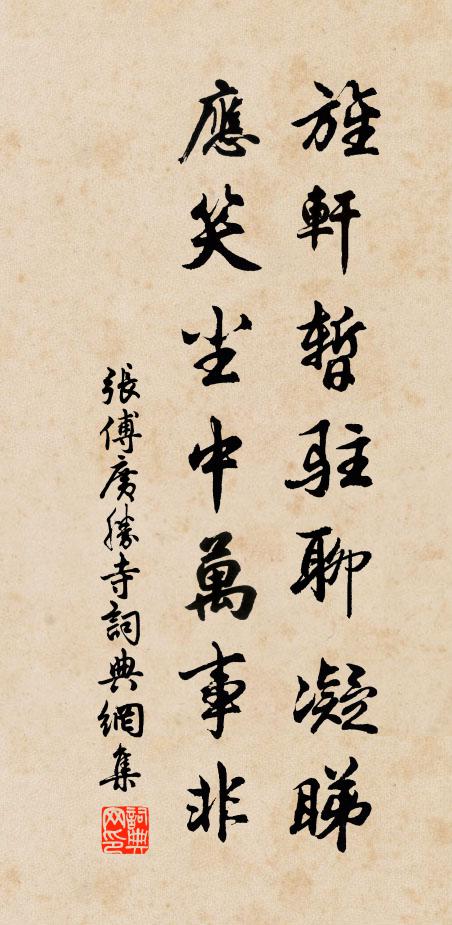 旌軒暫駐聊凝睇
應笑尘中萬事非
張傅廣勝寺詞典網集
詞典网印